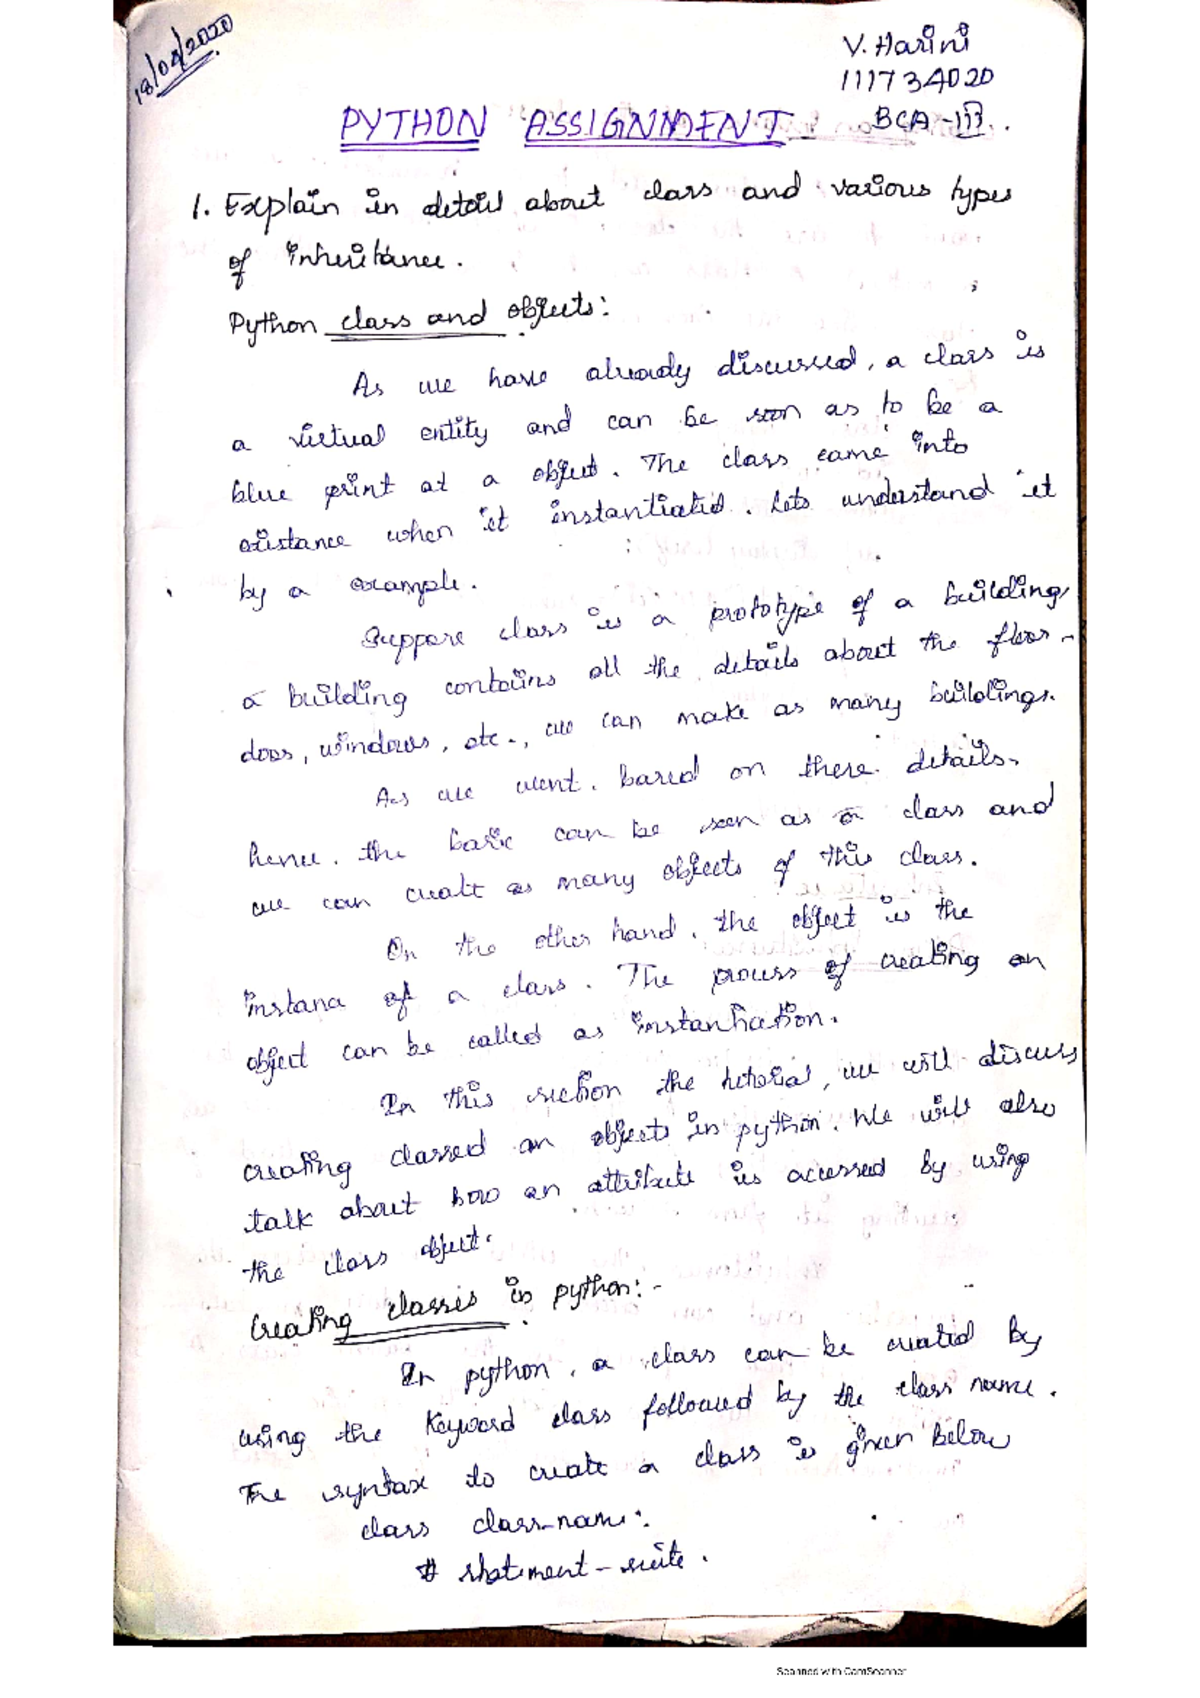 18/04/2020
V. Harini
111734020
BCA - III.
PYTHON ASSIGNMENT
1. Explain in detail about class and various types
of inheritance.
Python class and objects:
As we have already discussed, a class is
a virtual entity and can be seen as to be a
blue print at a object. The class came into
existance when it instantiated. Lets understand it
by a example.
Suppose class is a prototype of a building,
a building contains all the details about the floor-
doos, windows, etc., we can make as many buildings.
As we went. based on these details.
hence. the basic can be seen as a class and
we can create as many objects of this class.
On the other hand. the object is the
instana of a class. The process of creating an
object can be called as instantiation.
In this section the tutorial, we will discuss
creating classed an objects in python. We will also
talk about how an attribute is accessed by using
the class object.
Creating classes in python:-
In python, a class can be created by
using the Keyword class followed by the class name.
The syntax to create a class is given below
class class-name:
# statement-suite.
Scanned with CamScanner